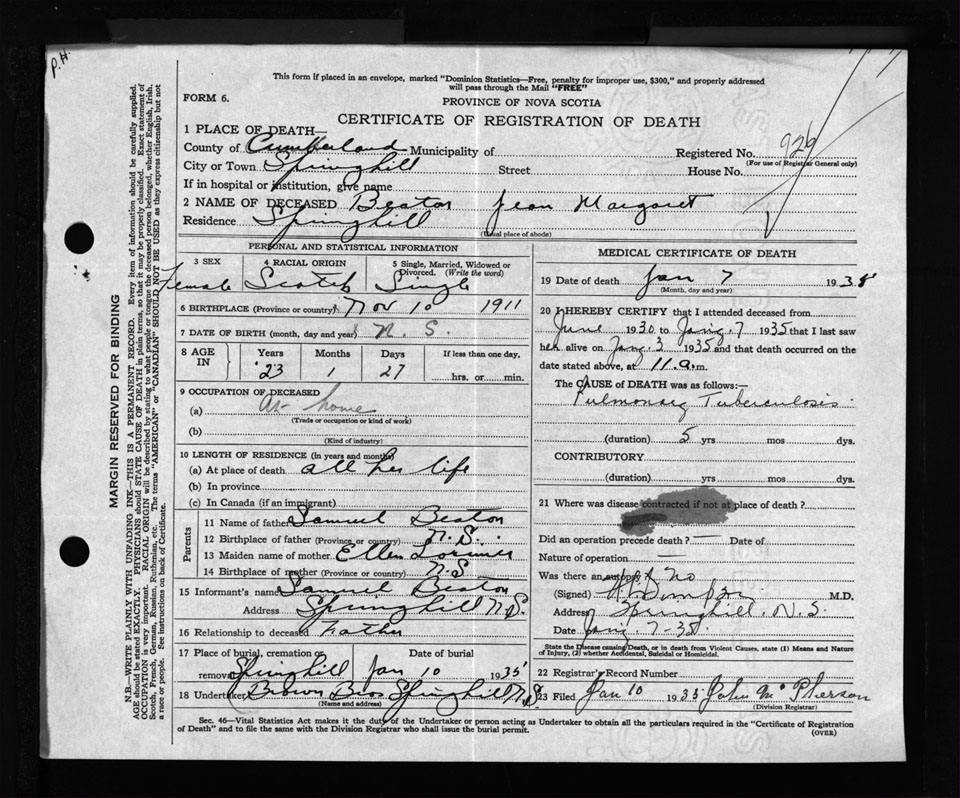 P.H.
This form if placed in an envelope, marked "Dominion Statistics—Free, penalty for improper use, $300," and properly addressed
will pass through the Mail "FREE"
FORM 6.
PROVINCE OF NOVA SCOTIA
CERTIFICATE OF REGISTRATION OF DEATH
1 PLACE OF DEATH—
County of Cumberland Municipality of
Registered No. 926
(For use of Registrar General only)
City or Town Springhill Street House No.
If in hospital or institution, give name
2 NAME OF DECEASED Beaton Jean Margaret
Residence Springhill
(Usual place of abode)
PERSONAL AND STATISTICAL INFORMATION
3 SEX 4 RACIAL ORIGIN 5 Single, Married, Widowed or Divorced. (Write the word)
Female Scotch Single
6 BIRTHPLACE (Province or country) Nov 10 1911
7 DATE OF BIRTH (month, day and year) N. S.
8 AGE IN Years Months Days If less than one day,
23 1 27 hrs. or min.
9 OCCUPATION OF DECEASED
(a) At home
(Trade or occupation or kind of work)
(b)
(Kind of industry)
10 LENGTH OF RESIDENCE (in years and months)
(a) At place of death all her life
(b) In province
(c) In Canada (if an immigrant)
Parents
11 Name of father Samuel Beaton
12 Birthplace of father (Province or country) N.S.
13 Maiden name of mother Ellen Lorimer
14 Birthplace of mother (Province or country) N.S
15 Informant's name Samuel Beaton
Address Springhill N.S.
16 Relationship to deceased Father
17 Place of burial, cremation or removal Date of burial
Springhill Jan 10 1935
18 Undertaker Brown Bros Springhill N.S.
(Name and address)
MEDICAL CERTIFICATE OF DEATH
19 Date of death Jan 7 1935
(Month, day and year)
20 I HEREBY CERTIFY that I attended deceased from
June 1930 to Jany. 7 1935 that I last saw
her alive on Jany. 3 1935 and that death occurred on
date stated above, at 11.a.m.
The CAUSE of DEATH was as follows:—
Pulmonary Tuberculosis.
(duration) 5 yrs mos dys.
CONTRIBUTORY
(duration) yrs mos dys.
21 Where was disease contracted if not at place of death?
Did an operation precede death? — Date of
Nature of operation —
Was there an autopsy? No
(Signed) M.D.
Address Springhill. N.S.
Date Jany. 7-35.
State the Disease causing Death, or in death from Violent Causes, state (1) Means and Nature
of Injury, (2) whether Accidental, Suicidal or Homicidal.
22 Registrar's Record Number
23 Filed Jan 10 1935 John McPherson
(Division Registrar)
Sec. 46—Vital Statistics Act makes it the duty of the Undertaker or person acting as Undertaker to obtain all the particulars required in the "Certificate of Registration
of Death" and to file the same with the Division Registrar who shall issue the burial permit.
(OVER)
MARGIN RESERVED FOR BINDING
N.B.—WRITE PLAINLY WITH UNFADING INK—THIS IS A PERMANENT RECORD. Every item of information should be carefully supplied.
AGE should be stated EXACTLY. PHYSICIANS should STATE CAUSE OF DEATH in plain terms, so that it may be properly classified. Exact statement of
OCCUPATION is very important. RACIAL ORIGIN will be described by stating to what people or tongue the deceased person belonged, whether English, Irish,
Scotch, French, German, Russian, Ruthenian, etc. The terms "AMERICAN" or "CANADIAN" SHOULD NOT BE USED as they express citizenship but not
a race or people. See instructions on back of Certificate.